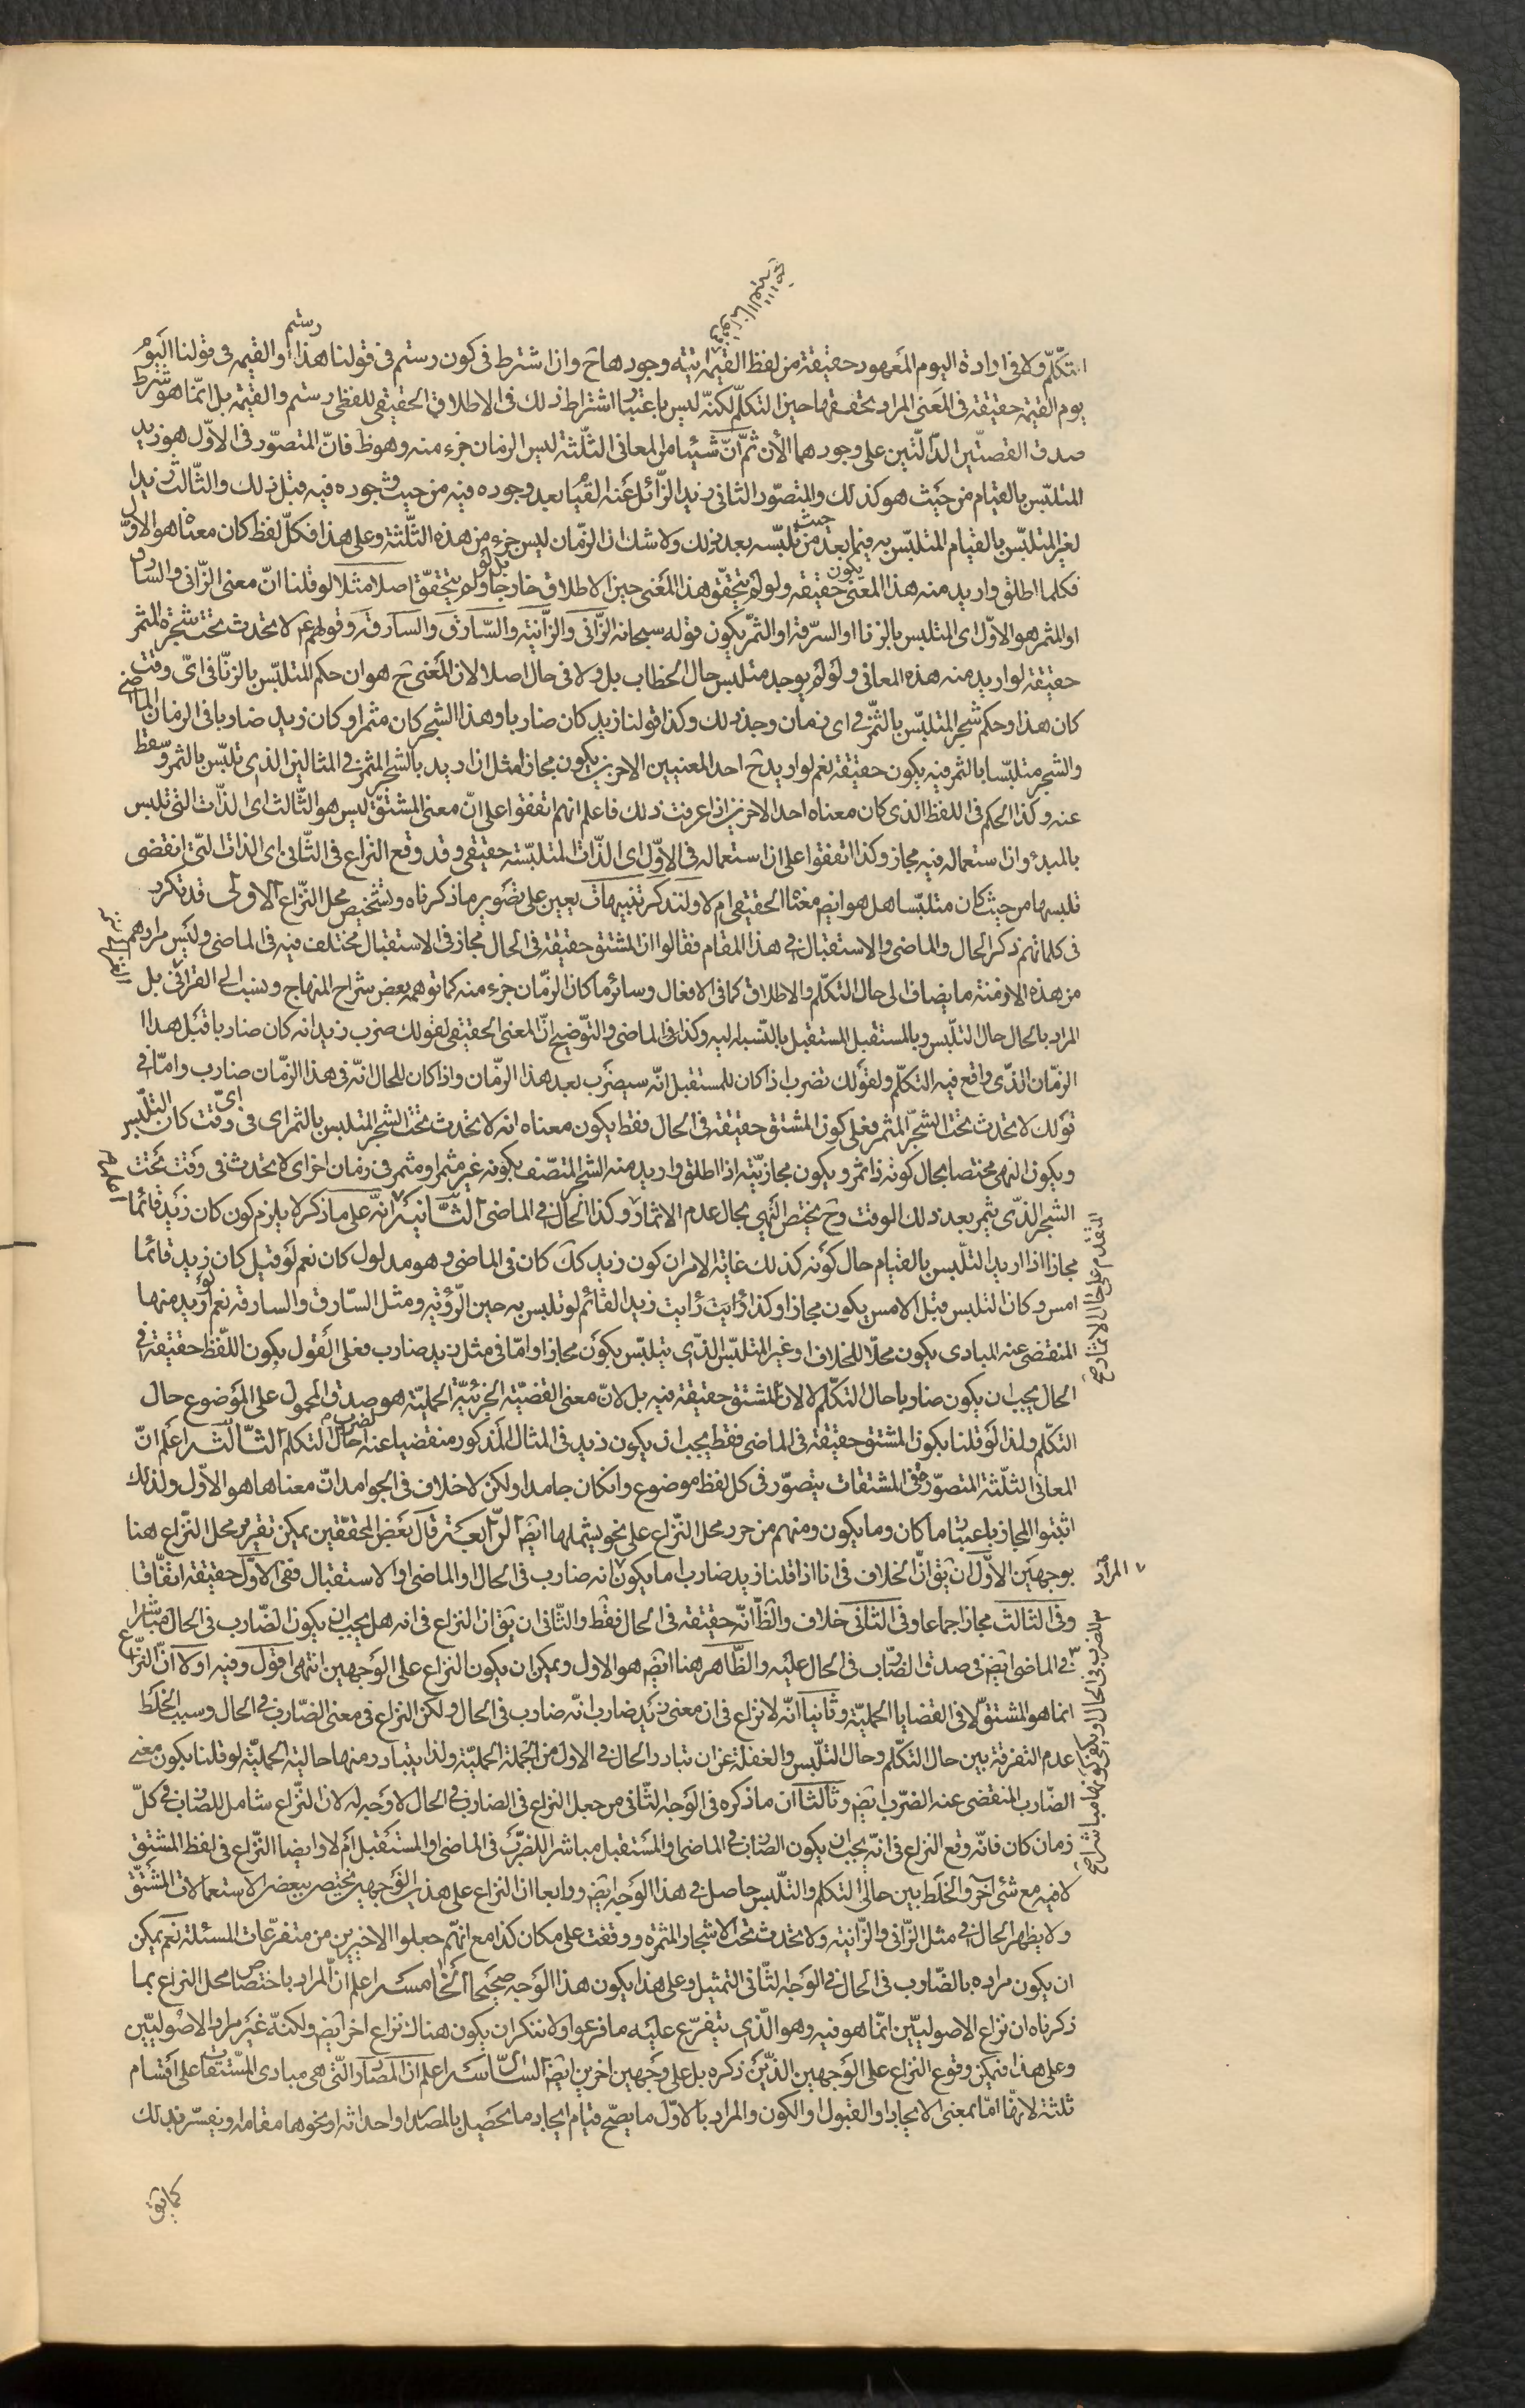 التكلّم ولا فى ارادة اليوم المعهود حقيقة من لفظ القيمة وجودها ح وان اشترط فى كون رستم فى قولنا هذا رستم او القيمه فى قولنا اليوم
يوم القيمة حقيقة فى المعنى المراد تحققها حين التكلّم لكنّه ليس باعتبار اشتراط ذلك فى الاطلاق الحقيقى للفظى رستم والقيمة بل انّما هو شرط
صدق القضيتين الدّالّتين على وجودهما الأن ثمّ انّ شيئا من المعانى الثلثة ليس الزمان جزء منه وهو ظ فانّ المتصوّر فى الاوّل هو زيد
المتلبّس بالقيام من حيث هو كذلك والمتصوّر الثانى زيد الزّائل عنه القيام بعد وجوده فيه من حيث وجوده فيه قبل ذلك والثّالث زيد
لغير المتلبّس بالقيام المتلبّس به فيما بعد من حيث تلبّسه بعد ذلك ولا شك ان الزّمان ليس جزء من هذه الثّلثة وعلى هذا فكلّ لفظ كان معناه هو الاوّل
فكلما اطلق واريد منه هذا المعنى يكون حقيقه ولو لم يتحقّق هذا المعنى حين الاطلاق خارجا بل ولو لم يتحقّق اصلا مثلا لو قلنا انّ معنى الزّانى والسارق
او المثمر هو الاوّل اى المتلبس بالزنا او السّرقة او الثمر يكون قوله سبحانه الزّانى والزّانية والسّارق والسارقة وقولهم ع لا تحدث تحت شجرة المثمر
حقيقة لو اريد منه هذه المعانى ولو لم يوجد متلبس حال الخطاب بل ولا فى حال اصلا لان المعنى ح هو ان حكم المتلبّس بالزنّا فى اىّ وقت
كان هذا وحكم شجر المتلبّس بالثّمر فى اى زمان وجد ذلك وكذا قولنا زيد كان ضاربا وهذا الشجر كان مثمرا وكان زيد ضاربا فى الزمان الماضى
والشجر متلبّسا بالثمر فيه يكون حقيقة نعم لو اريد ح احد المعنيين الاخرين يكون مجازا مثل اذا اريد بالشجر المثمر فى المثالين الذى تلبّس بالثمر وسقط
عنه وكذا الحكم فى اللفظ الذى كان معناه احد الاخرين اذا عرفت ذلك فاعلم انهم اتفقوا على انّ معنى المشتقّ ليس هو الثّالث اى الذّات التى تلبس
بالمبدء وان استعماله فيه مجاز وكذا اتفقوا على ان استعماله فى الاوّل اى الذّات المتلبّسة حقيقى وقد وقع النزاع فى الثّانى اى الذات الّتى انقضى
تلبسها من حيث كان متلبّسا هل هو ايضا معناه الحقيقى ام لا ولنذكر تنبيهات يعين على تصوير ما ذكرناه وتشخيص محل النّزاع الاولى قد تكرر
فى كلماتهم ذكر الحال والماضى والاستقبال فى هذا المقام فقالوا ان المشتق حقيقة فى الحال مجاز فى الاستقبال مختلف فيه فى الماضى وليس مرادهم
من هذه الازمنة ما يضاف الى حال التكلّم والاطلاق كما فى الافعال وسائر ما كان الزمّان جزء منه كما توهمه بعض شراح المنهاج ونسب الى القرافى بل
المراد بالحال حال التلبّس وبالمستقبل المستقبل بالنّسبة اليه وكذا فى الماضى والتّوضيح انّ المعنى الحقيقى لقولك ضرب زيد انه كان ضاربا قبل هذا
الزمّان الّذى واقع فيه التكلّم ولقولك تضرب اذا كان للمستقبل انّه سيضرب بعد هذا الزمّان واذا كان للحال انّه فى هذا الزمّان ضارب وامّا فى
قولك لا تحدث تحت الشجر المثمر فعلى كون المشتق حقيقة فى الحال فقط يكون معناه انه لا تحدث تحت الشجر المتلبس بالثمر اى فى اىّ وقت كان التلبّس
ويكون النهى مختصا بحال كونه ذا ثمر ويكون مجازيّته اذا اطلق واريد منه الشجر المتّصف بكونه غير مثمر او مثمر فى زمان اخر اى لا تحدث فى وقت تحت
الشجر الّذى يثمر بعد ذلك الوقت وح يختصّ النّهى بحال عدم الاثمار وكذا الحال فى الماضى الثّانية انّه على ما ذكر لا يلزم كون كان زيد قائما
مجازا اذا اريد التلّبس بالقيام حال كونه كذلك غاية الامر ان كون زيد كك كان فى الماضى وهو مدلول كان نعم لو قيل كان زيد قائما
امس وكان التلبس قبل الامس يكون مجازا وكذا رايت زيد القائم لو تلبس به حين الرّؤية ومثل السّارق والسارقة نعم لو اريد منهما
المنقضى عنه المبادى يكون محلّا للخلاف او غير المتلبّس الّذى يتلبّس يكون مجازا وامّا فى مثل زيد ضارب فعلى القول بكون اللّفظ حقيقة فى
الحال يجب ان يكون ضاربا حال التكلّم لا لانّ المشتق حقيقة فيه بل لانّ معنى القضيّة الخبريّة الحمليّة هو صدق المحمول على الموضوع حال
التكلّم ولذا لو قلنا بكون المشتق حقيقة فى الماضى فقط يجب ان يكون زيد فى المثال المذكور منقضيا عنه الضرب حال التكلم الثّالثة اعلم انّ
المعانى الثلّثة المتصوّرة فى المشتقات يتصوّر فى كل لفظ موضوع وان كان جامدا ولكن لا خلاف فى الجوامد انّ معناها هو الاوّل ولذلك
اثبتوا المجاز باعتبار ما كان وما يكون ومنهم من حرر محل النّزاع على نحو يشملها ايضا الرّابعة قال بعض المحققّين يمكن تقرير محل النّزاع هنا
بوجهين الاوّل ان يق انّ الخلاف فى انا اذا قلنا زيد ضارب اما يكون المراد انه ضارب فى الحال او الماضى او الاستقبال ففى الاوّل حقيقة اتفّاقا
وفى الثالث مجاز اجماعا وفى الثّانى خلاف والظّ انّه حقيقة فى الحال فقط والثّانى ان يق ان النزاع فى انه هل يجب ان يكون الضّارب فى الحال مباشرا
فى الماضى ايضا فى صدق الضّارب فى الحال عليه والظّاهر هنا ايضا هو الاول ويمكن ان يكون النزاع على الوجهين انتهى اقول وفيه اولا انّ النزّاع
انما هو المشتقّ لا فى القضايا الحمليّة وثانيا انّه لا نزاع فى ان معنى زيد ضارب انّه ضارب فى الحال ولكن النزاع فى معنى الضّارب فى الحال وسبب الخلط
عدم التفرقة بين حال التكلّم وحال التلّبس والغفلة عن ان تبادر الحال فى الاول من الجملة الحمليّة ولذا يتبادر منها حالية الحمليّة لو قلنا بكون معنى
الضّارب المنقضى عنه الضّرب ايضا وثالثا ان ما ذكره فى الوجه الثّانى من جعل النزاع فى الضارب فى الحال لا وجه له لان النّزاع شامل للضارب فى كلّ
زمان كان فانّه وقع النزاع فى انّه يجب ان يكون الضارب فى الماضى او المستقبل مباشرا للضّرب فى الماضى او المستقبل ام لا وايضا النّزاع فى لفظ المشتق
لا فيه مع شئ آخر والخلط بين حالتى التكلم والتلّبس حاصل فى هذا الوجه ايضا ورابعا ان النزاع على هذين الوجهين يختص ببعض الاستعمالات المشتقّ
ولا يظهر الحال فى مثل الزّانى والزّانية ولا تحدث تحت الاشجار المثمرة ووقفت على مكان كذا مع انهّم جعلوا الاخيرين من متفرّعات المسئلة نعم يمكن
ان يكون مراده بالضّارب فى الحال فى الوجه الثّانى التمثيل وعلى هذا يكون هذا الوجه صحيحا الخامسة اعلم انّ المراد باختصاص محل النزاع بما
ذكرناه ان نزاع الاصوليّين انّما هو فيه وهو الّذى يتفرّع عليه ما فرعوا ولا ننكر ان يكون هناك نزاع اخر ايضا ولكنّه غير مراد الاصوليّين
وعلى هذا فيمكن وقوع النزاع على الوجهين الذّين ذكره بل على وجهين اخرين ايضا السّادسة اعلم ان المصادر الّتى هى مبادى المشتقات على اقسام
ثلثة لانهّا امّا بمعنى الايجاد او القبول او الكون والمراد بالاوّل ما يصحّ قيام ايجاد ما يحصل بالمصدر او احداثه او نحوها مقامه ويفسّر بذلك
كما يق